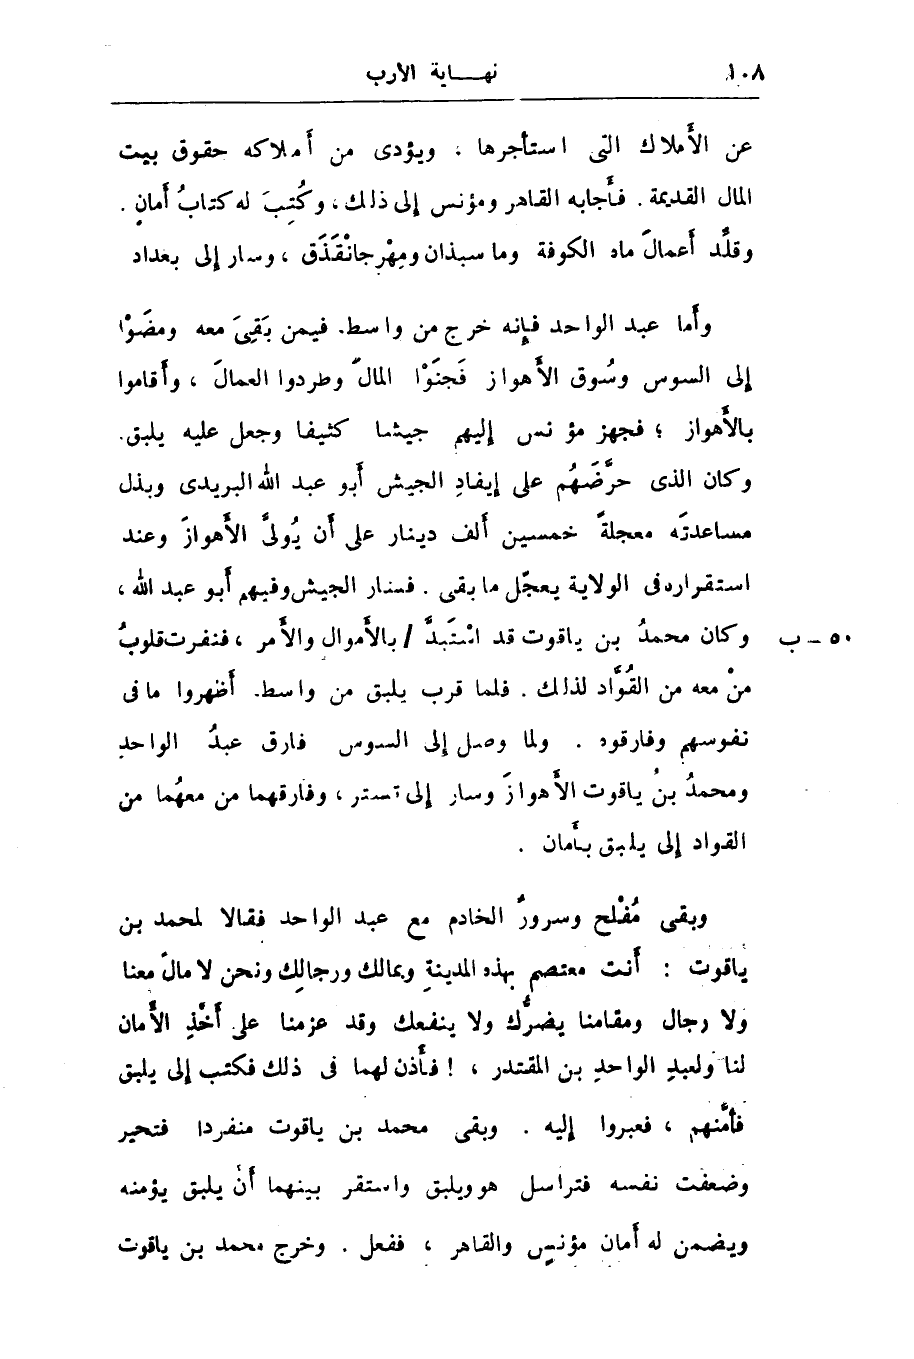 ١٠٨ نهـــاية الأرب
عن الأملاك التى استأجرها ، ويؤدى من أملاكه حقوق بيت
المال القديمة . فأجابه القاهر ومؤنس إلى ذلك ، وكُتِبَ له كتابُ أمانٍ .
وقلَّد أعمالَ ماه الكوفة وماسبذان ومِهْرجانْقَذَق ، وسار إلى بغداد
وأما عبد الواحد فإنه خرج من واسط. فيمن بَقِىَ معه ومضَوْا
إلى السوس وسُوق الأهواز فَجنَوْا المالَ وطردوا العمالَ ، وأقاموا
بالأهواز ؛ فجهز مؤنس إليهم جيشا كثيفا وجعل عليه يلبق.
وكان الذى حرَّضَهُم على إيفادِ الجيش أبو عبد الله البريدى وبذل
مساعدتَه معجلةً خمسين ألف دينار على أن يُولَّى الأهوازَ وعند
استقراره فى الولاية يعجّل ما بقى . فسار الجيش وفيهم أبو عبد الله ،
وكان محمدُ بن ياقوت قد اسْتَبدَّ / بالأموال والأمر ، فنفرت قلوبُ ٥٠ - ب
منْ معه من القُوَّاد لذلك . فلما قرب يلبق من واسط. أظهروا ما فى
نفوسهم وفارقوه . ولما وصل إلى السوس فارق عبدُ الواحدِ
ومحمدُ بنُ ياقوت الأهوازَ وسار إلى تستر ، وفارقهما من معهُما من
القواد إلى يلبق بأمان .
وبقى مُفْلح وسرورُ الخادم مع عبد الواحد فقالا لمحمد بن
ياقوت : أنت معتصم بهذه المدينةِ وبمالك ورجالِك ونحن لا مالَ معنا
ولا رجال ومقامنا يضرُّك ولا ينفعك وقد عزمنا على أخْذِ الأمان
لنا ولعبدِ الواحدِ بن المقتدر ، ! فأذن لهما فى ذلك فكتب إلى يلبق
فأمَّنهم ، فعبروا إليه . وبقى محمد بن ياقوت منفردا فتحير
وضعفت نفسه فتراسل هو ويلبق واستقر بينهما أنْ يلبق يؤمنه
ويضمن له أمانَ مؤنسٍ والقاهر ، ففعل . وخرج محمد بن ياقوت